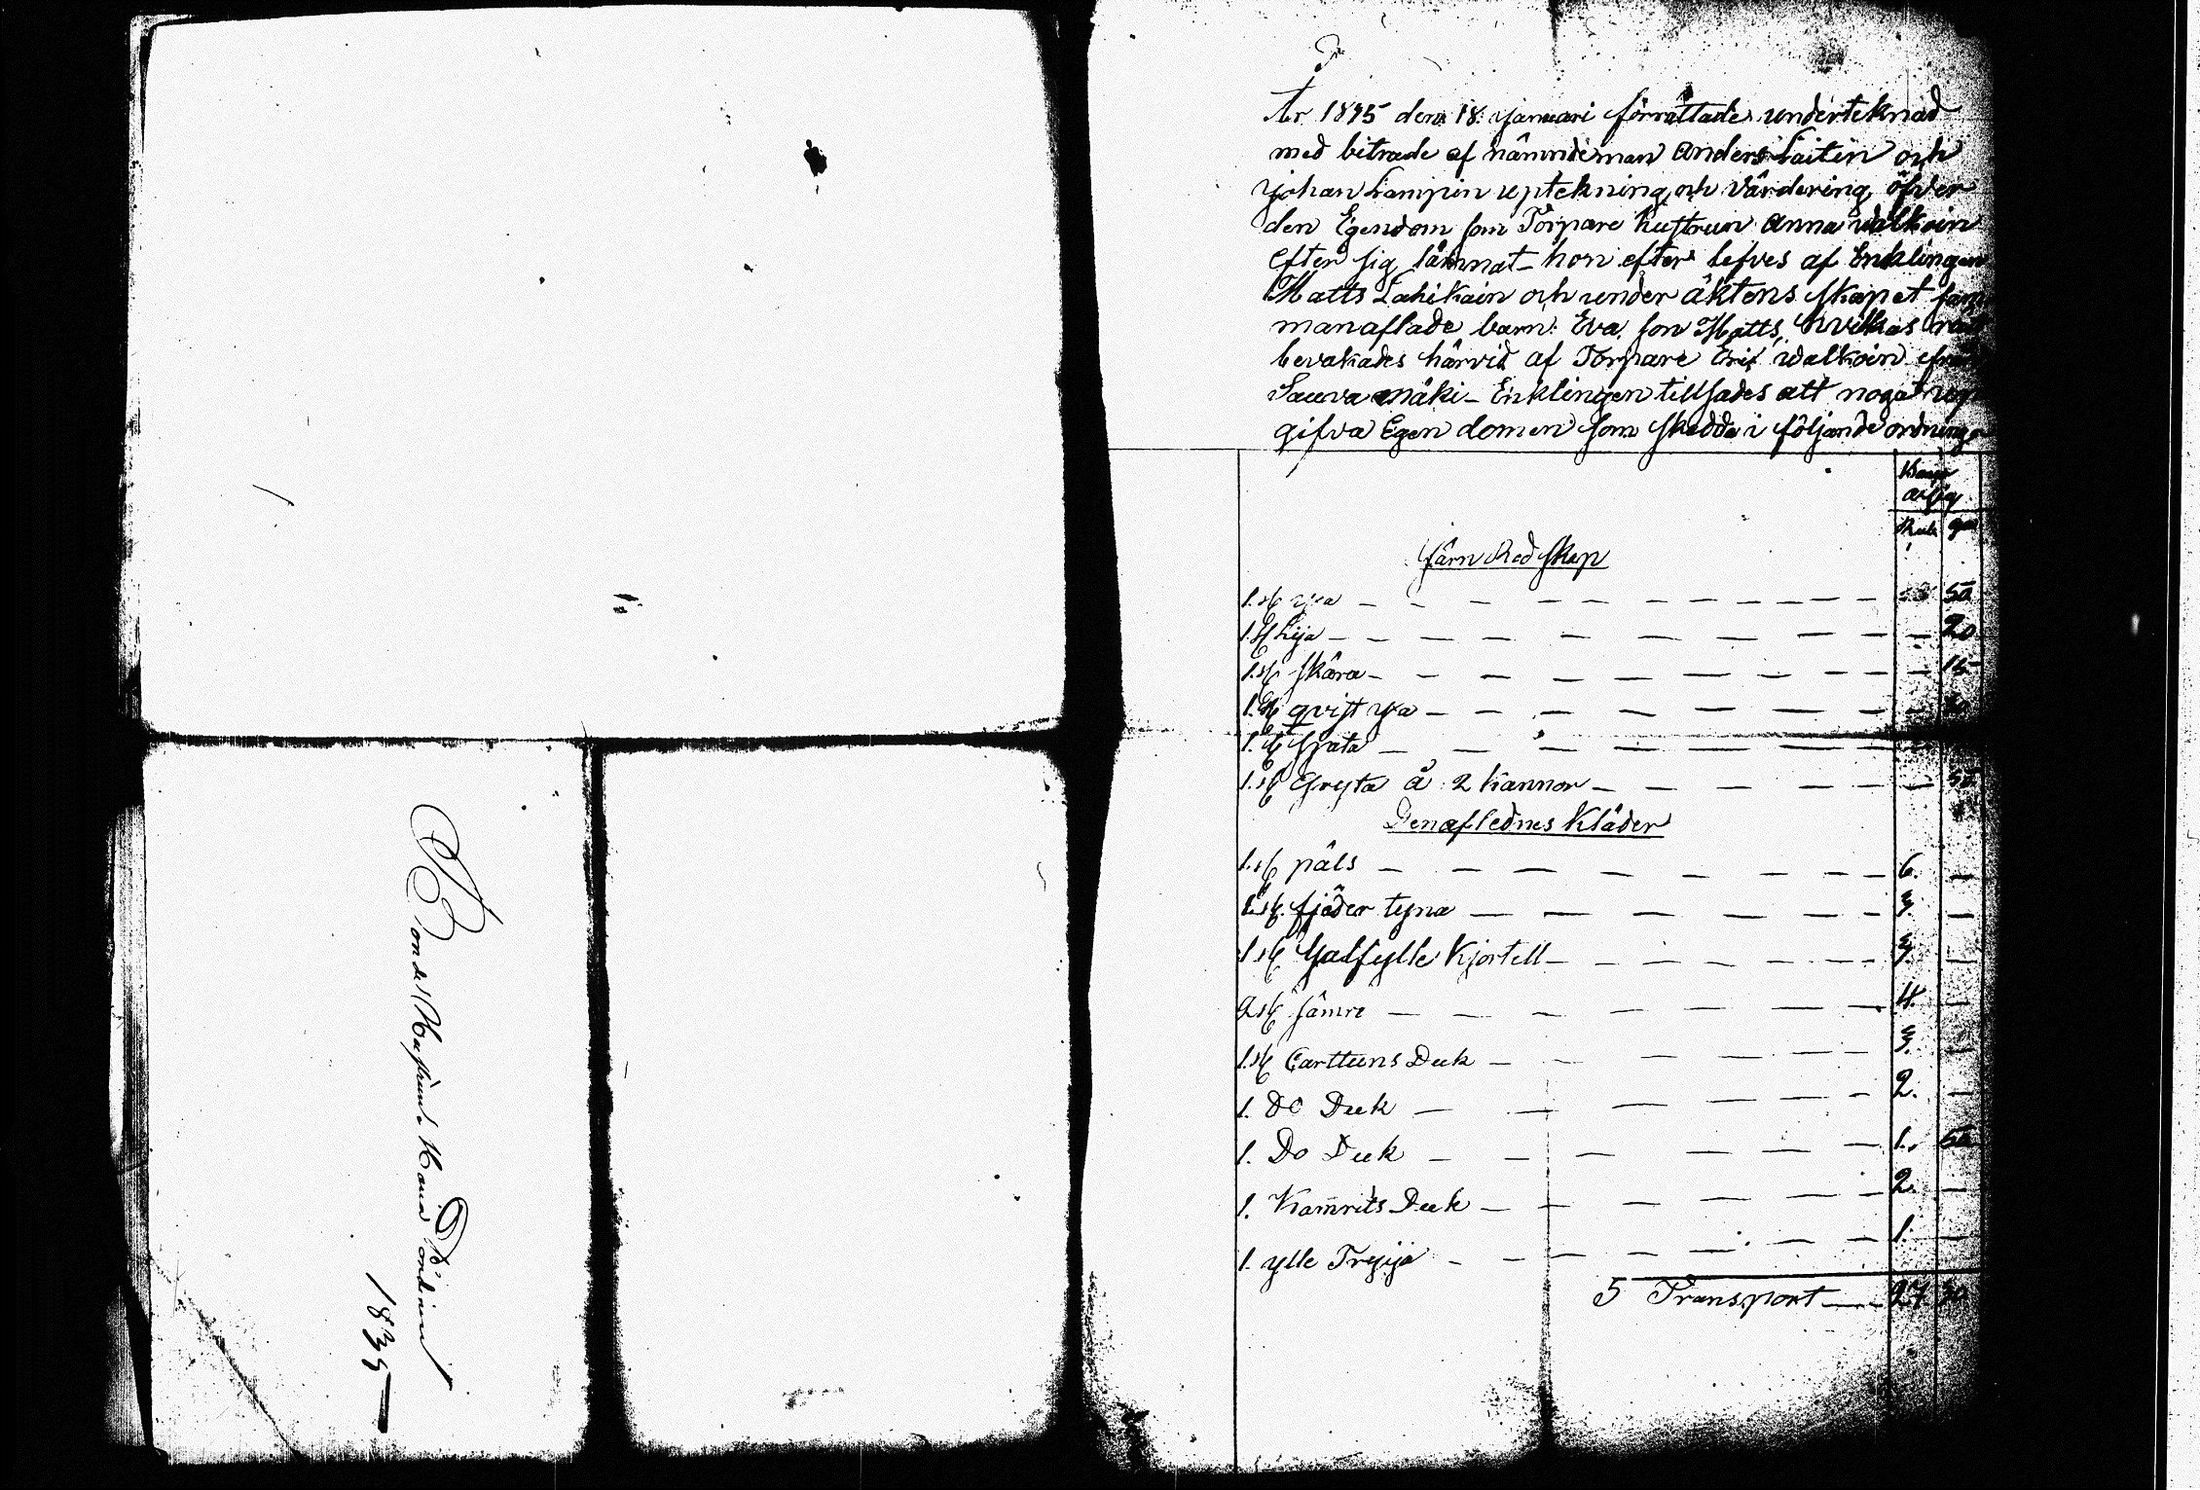 Bonde Hustrun
1835
År 1875 den 18 Januari förrättades underteknad
med biträde af nämndeman Anders Laitin och
Johan Lampin uptekning och värdering öfver
den Egendom som Torpare hustrun Anna walkoin
efter sig lämnat - hon efter lefves af Enklingen
Matts Lahikain och under äktens skapet sam
manaflade barn: Eva, son Matts, hvilkas rätt
bevakades härvid af Torpare Erik walkoin från
Sauva mäki - Enklingen tillsades att noga upp
gifva Egen domen som skedde i följande ordning.
Järn Redskap
1. st yxa — — 50
1. st Lija — — 20
1. st skära — — 15
1. st qvist yxa —
1. st spata —
1. st Gryta à 2 kannor — — 50
Den aflednes Kläder
1. st päls — 6. —
1. st. fjäder tyna — 3. —
1. st halfylle Kjortell — 3. —
2 st — 4. —
1. st Carttuns Duk — 3. —
1. Do Duk — 2. —
1. Do Duk — 1. 50
1. Kam̄rits Duk — 2. —
1. ylle Tryija — 1. —
Transport — 27